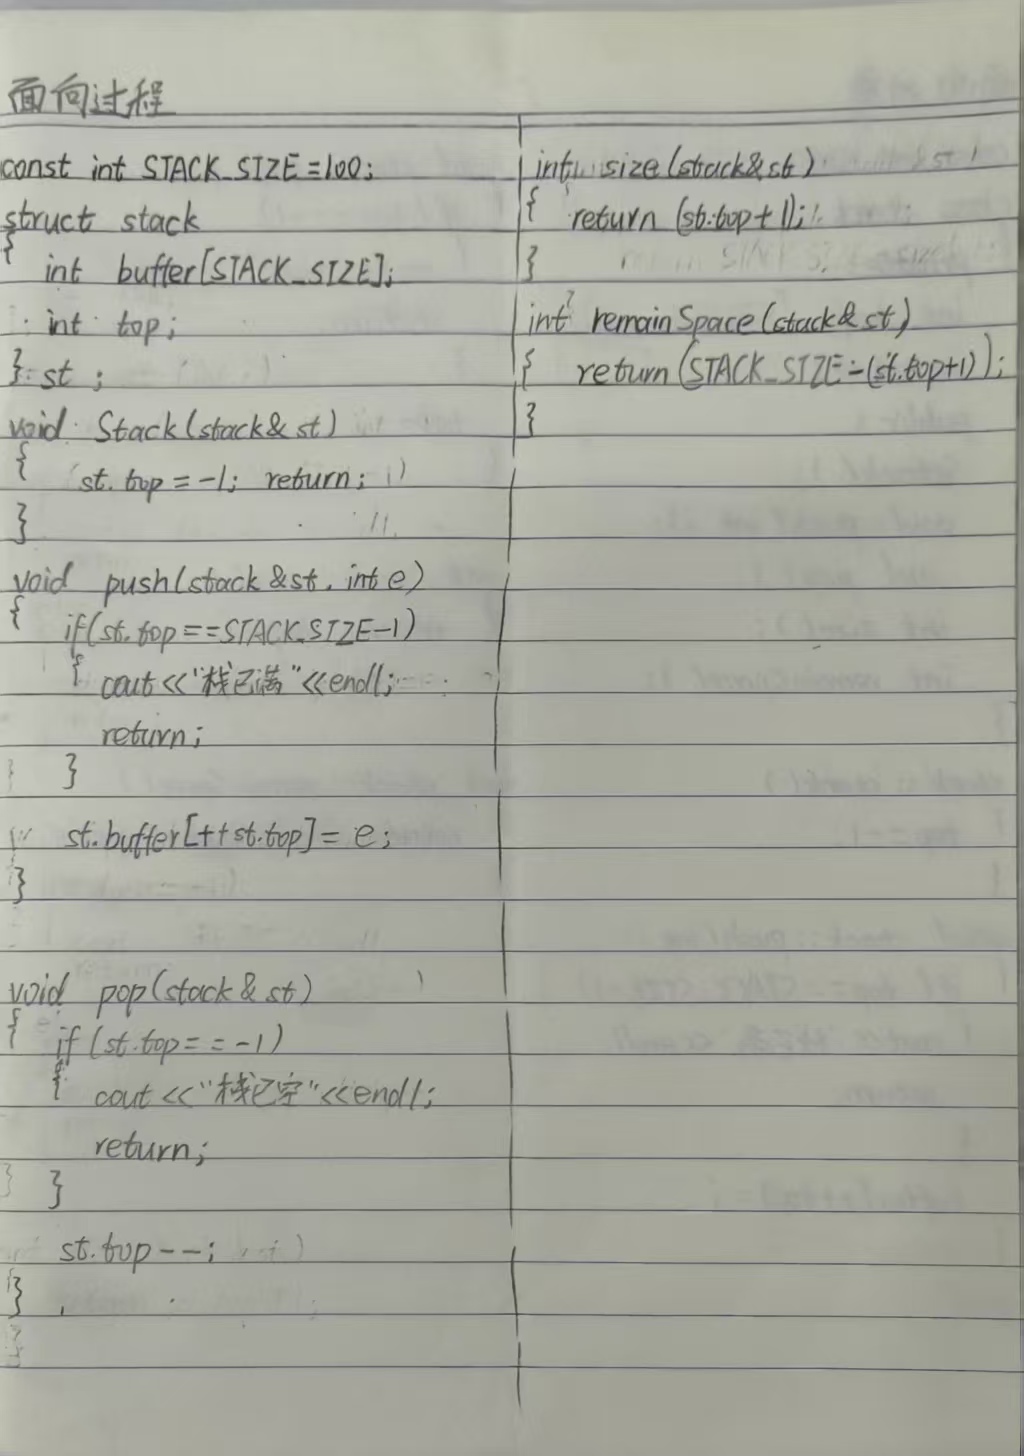 面向过程
const int STACK_SIZE=100;
struct stack
{
int buffer[STACK_SIZE];
int top;
} st ;
void Stack(stack& st)
{
st.top=-1; return;
}
void push(stack &st, int e)
{
if(st.top==STACK_SIZE-1)
{
cout<<"栈已满"<<endl;
return;
}
st.buffer[++st.top]= e;
}
void pop(stack& st)
{
if (st.top==-1)
{
cout<<"栈已空"<<endl;
return;
}
st.top--;
}
int size(stack&st)
{ return (st.top+1);
}
int remainSpace(stack& st)
{ return(STACK_SIZE-(st.top+1));
}